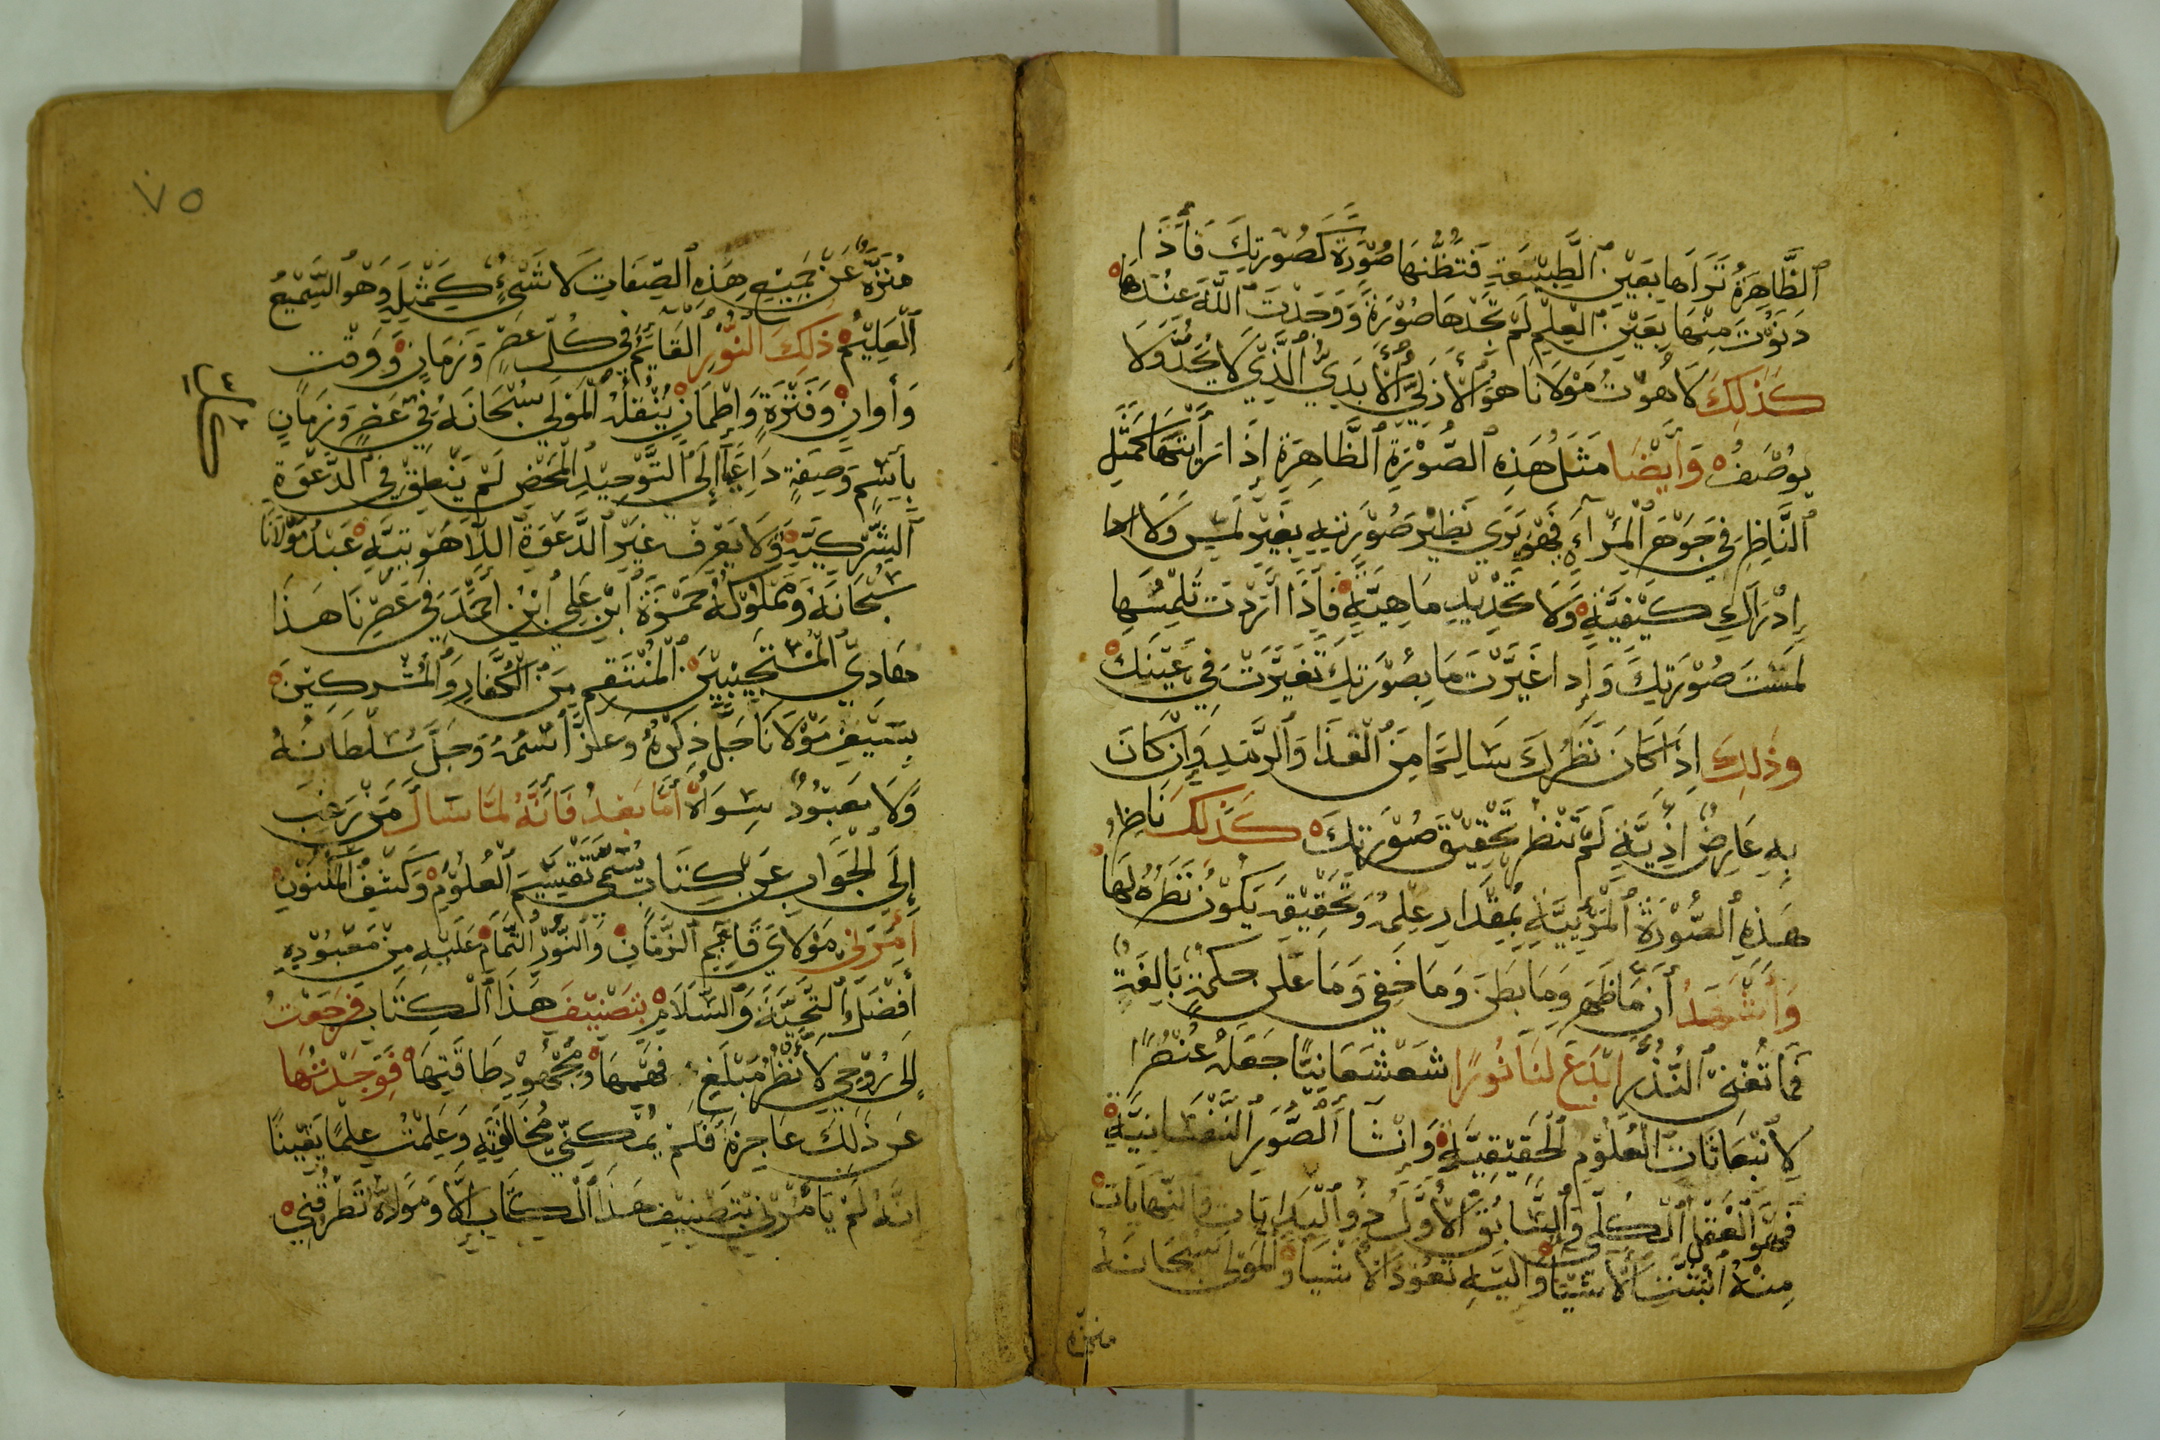 ٱلظَّاهِرَةُ تَرَاهَا بِعَيْنِ ٱلطَّبِيْعَةِ فَتَظُنُّهَا صُوْرَةً كَصُوْرَتِكَ فَأِذَا
دَنَوْتَ مِنْهَا بِعَيْنِ ٱلْعِلْمِ لَمْ تَجِدْهَا صُوْرَةً وَوَجَدْتَ ٱللَّهَ عِنْدَهَا
كَذٰلِكَ لَاهُوْتُ مَوْلَانَا هُوَ ٱلْأَزَلِيُّ ٱلْأَبَدِيُّ ٱلَّذِيْ لَا يُحَدُّ وَلَا
يُوْصَفُ وَأَيْضَا مَثَلُ هَذِهِ ٱلصُّوْرَةِ ٱلظَّاهِرَةِ إِذَا رَأَيْتَهَا كَمَثَلِ
ٱلنَّاظِرِ فِي جَوْهَرِ ٱلْمِرْآءِ فَهُوَ يَرَي نَظِيْرَ صُوْرَتِهِ بِغَيْرِ لَمْسٍ وَلَا
إِدْرَاكِ كَيْفِيَّةٍ وَلَا تَحْدِيْدِ مَاهِيَّةٍ فَأِذَا أَرَدْتَ تَلْمِسُهَا
لَمَسْتَ صُوْرَتِكَ وَإِذا غَيَّرْتَ مَا بِصُوْرَتِكَ تَغَيَّرَتْ فِي عَيْنِكَ
وذٰلِكَ إِذَا كَانَ نَظَرُكَ سَالِمًا مِنَ ٱلْقَذَا وَٱلرَّمَدِ وَإِنْ كَانَ
بِهِ عَارِضُ اَذِيَّةٍ لَمْ تَنْظُرْ تَحْقِيْقَ صُوْرَتِكَ كَذٰلِكَ نَاظِرُ
هَذِهِ ٱلصُّوْرَةِ ٱلْمَرْئِيَّةِ بِمِقْدَارِ عِلْمِهِ وَتَحْقِيْقِهِ يَكُوْنُ نَظَرُهُ لَهَا
وَأَشْهَدُ أَنَّ مَا ظَهَرَ وَمَا بَطَنَ وَمَا خَفِي وَمَا عَلَنَ حِكْمَةٌ بَالِغَةٌ
فَمَا تُغْنِ ٱلنُّذُرُ اِبْدَعَ لَنَا نُورًا شَعْشَعَانِيًّا جَعَلَهُ عُنْصُرًا
لِأَنْبِعَاثَاتِ ٱلْعُلُوْمِ ٱلْحَقِيْقِيَّةِ وَاِنْشَآ ٱلصُّوَرِ ٱلنَّفْسَانِيَّةِ
فَهُوَ ٱلْعَقْلُ ٱلْكُلِّي وَٱلسَّابِقُ ٱلْأَوَّلُ ذُو ٱلْبِدَايَاتِ وَالنِّهَايَاتِ
مِنْهُ اَنْبَثَّتِ ٱلْأَشْيَا وَٱلَيْهِ تَعُوْدُ ٱلْأَشْيَا وَٱلْمَوْلَي سُبْحَانَهُ
منزه
٧٥
مُنَزَّهٌ عَنْ جَمِيْعِ هَذِهِ ٱلصِّفَاتِ لَا شَيْءٌ كَمِثْلِهِ وَهُوَ ٱلسَّمِيْعُ
ٱلْعَلِيْمُ ذَلِكَ النُّوْرُ ٱلْقَايِمُ فِي كُلِّ عَصْرٍ وَزَمَانٍ وَوَقْتٍ
وَأَوانٍ وَفَتْرَةٍ وَاِطْمَانٍ يَنْقُلُهُ ٱلْمَوْلَي سُبْحَانَهُ فِي عَصْرٍ وَزَمَانٍ
بِأَسْمٍ وَصِفَةٍ دَاعِيًا إِلَى ٱلتَّوْحِيْدِ ٱلْمَحْضِ لَمْ يَنْطِقْ فِي ٱلدَّعْوَةِ
ٱلشِّرْكِيَّةِ وَلَا يَعْرِفُ غَيْرَ ٱلدَّعْوَةِ ٱللَّاهُوْتِيَّةِ عَبْدُ مَوْلَانَا
سُبْحَانَهُ وَمَمْلُوْكُهُ حَمْزَةُ اَبْنُ عَلِي اَبْنُ اَحْمَدَ فِي عَصْرِنَا هَذَا
هَادِيُ ٱلْمُسْتَجِيْبِيْنَ ٱلْمُنْتَقِمُ مِنَ ٱلْكُفَّارِ وَٱلْمُشْرِكِيْنَ
بِسَيْفِ مَوْلَانَا جَلَّ ذِكْرُهُ وَعَزَّ أَسْمُهُ وَجَلَّ سُلْطَانُهُ
وَلَا مَعْبُوْدٌ سِوَاهُ أَمَّا بَعْدُ فَأِنَّهُ لَمَّا سَأَلَ مَنْ رَغِبَ
إِلَى ٱلْجَوَابِ عَنْ كِتَابٍ يُسَمَّى تَقْسِيْمَ ٱلْعُلُوْمِ وَكَشْفَ ٱلْمَكْنُوْنِ
أَمَرَنِي مَوْلَايَ قَايِمُ ٱلزَّمَانِ وَٱلنُّوْرُ ٱلتَّمَامُ عَلَيْهِ مِنْ مَعْبُوْدِهِ
أَفْضَلُ ٱلتَّحِيَّةِ وَٱلسَّلَامِ بِتَصْنِيْفِ هَذَا ٱلْكِتَابِ فَرَجَعْتُ
إِلَى رُوْحِي لِأَنْظُرَ مَبْلَغَ فَهْمِهَا وَمَجْهُوْدِ طَاقَتِهَا فَوَجَدْتُهَا
عَنْ ذٰلِكَ عَاجِزَةً فَلَمْ يُمْكِنِّي مُخَالَفَتِهِ وَعَلِمْتُ عِلْمًا يَقِيْنًا
اَنَّهُ لَمْ يَأْمُرْنِي بِتَصْنِيْفِ هَذَا ٱلْكِتَابِ اِلَّا وَمَوَادُهُ تَطْرُقُنِي